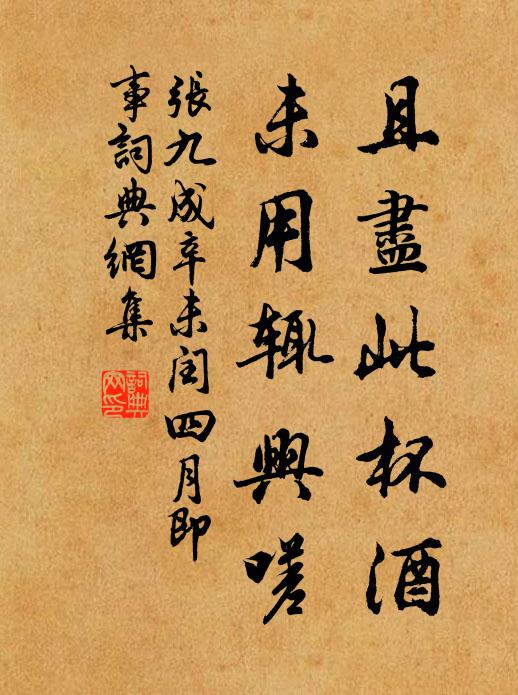 且盡此杯酒
未用輒興嗟
張九成辛未閏四月即
事詞典網集
詞典
网印